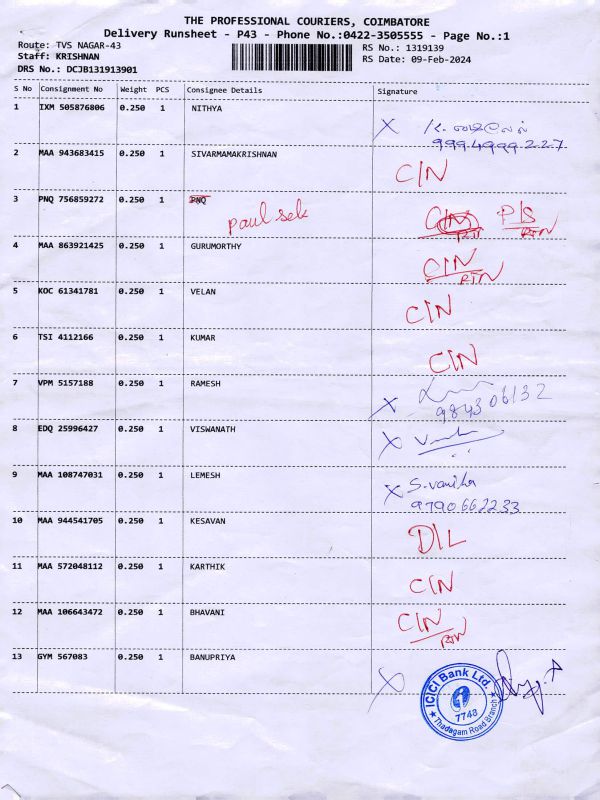 THE PROFESSIONAL COURIERS, COIMBATORE
Delivery Runsheet - P43 - Phone No.:0422-3505555 - Page No.:1
Route: TVS NAGAR-43 RS No.: 1319139
Staff: KRISHNAN RS Date: 09-Feb-2024
DRS No.: DCJB131913901
S No Consignment No Weight PCS Consignee Details Signature
1 IXM 505876806 0.250 1 NITHYA X
9994999227
2 MAA 943683415 0.250 1 SIVARMAMAKRISHNAN C/N
3 PNQ 756859272 0.250 1 PNQ paul sek C/N P/S
RTN
4 MAA 863921425 0.250 1 GURUMORTHY C/N
RTN
5 KOC 61341781 0.250 1 VELAN C/N
6 TSI 4112166 0.250 1 KUMAR C/N
7 VPM 5157188 0.250 1 RAMESH X
984306132
8 EDQ 25996427 0.250 1 VISWANATH X
9 MAA 108747031 0.250 1 LEMESH X S. vanitha
9790662233
10 MAA 944541705 0.250 1 KESAVAN D/L
11 MAA 572048112 0.250 1 KARTHIK C/N
12 MAA 106643472 0.250 1 BHAVANI C/N
RTN
13 GYM 567083 0.250 1 BANUPRIYA X
ICICI Bank Ltd.
7748
★ Thadagam Road Branch ★